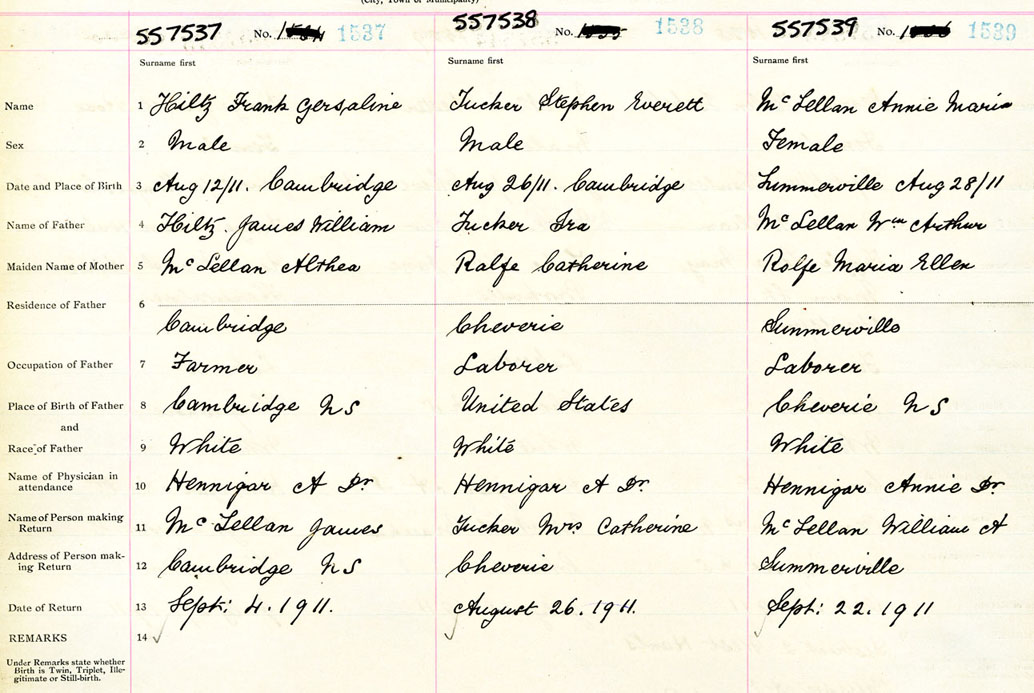 (City, Town or Municipality)
557537 No. 1537 557538 No. 1538 557539 No. 1539
Surname first Surname first Surname first
Name 1 Hiltz Frank Gersaline Tucker Stephen Everett McLellan Annie Maria
Sex 2 Male Male Female
Date and Place of Birth 3 Aug 12/11. Cambridge Aug 26/11. Cambridge Summerville Aug 28/11
Name of Father 4 Hiltz. James William Tucker Ira McLellan Wm Arthur
Maiden Name of Mother 5 McLellan Althea Ralfe Catherine Rolfe Maria Ellen
Residence of Father 6
Cambridge Cheverie Summerville
Occupation of Father 7 Farmer Laborer Laborer
Place of Birth of Father 8 Cambridge NS United States Cheverie NS
and
Race of Father 9 White White White
Name of Physician in
attendance 10 Hennigar A Dr Hennigar A Dr. Hennigar Annie Dr.
Name of Person making
Return 11 McLellan James Tucker Mrs Catherine McLellan William A
Address of Person mak-
ing Return 12 Cambridge NS Cheverie Summerville
Date of Return 13 Sept: 4. 1911. August 26. 1911. Sept: 22. 1911
REMARKS 14
Under Remarks state whether
Birth is Twin, Triplet, Ille-
gitimate or Still-birth.